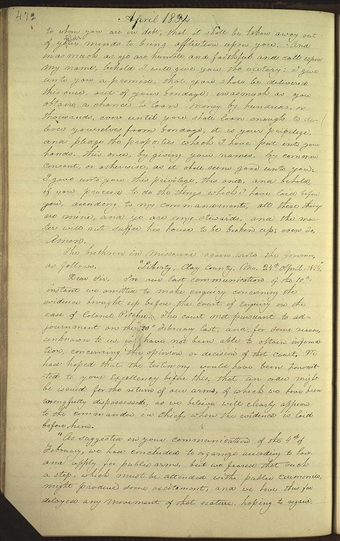 472
April 1834
to whom you are in debt, that it shall be taken away out
of their minds to bring affliction upon you. And
inasmuch as ye are humble and faithful and call upon
my name, behold I will give you the victory. I give
unto you a promise, that you shall be delivered
this once, out of your bondage; inasmuch as you
obtain a chance to loan money by hundreds, or
thousands, even until you shall loan enough to de-
liver yourselves from bondage, it is your privilege
and pledge the properties which I have put into your
hands, this once, by giving your names, by common
consent, or otherwise, as it shall seem good unto you.
I give unto you this privilege, this once, and behold
if you proceed to do the things which I have laid before
you, according to my commandments, all these things
are mine, and ye are my stewards, and the mas-
ter will not suffer his house to be broken up; even so.
Amen.
The brethren in Missouri again write the governor
as follows. "Liberty, Clay County, Mo. 24th April 1834.
Dear Sir. In our last communication of the 10th
instant we omitted to make enquiry concerning the
evidence brought up before the court of enquiry in the
case of Colonel Pitcher. The court met pursuant to ad-
journment on the 20th February last, and for some reason
unknown to us, we have not been able to obtain informa-
tion, concerning the opinion or decision of that court. We
had hoped that the testimony would have been transmit-
ted to your Excellency before this, that an order might
be issued for the return of our arms, of which we have been
wrongfully dispossessed, as we believe will clearly appear
to the commander in chief, when the evidence is laid
before him.
"As suggested in your communication of the 4th of
February, we had concluded to organize according to law
and apply for public arms, but we feared that such
a step, which must be attended with public ceremonies
might produce some excitement, and we have thus far
delayed any movement of that nature, hoping to regain